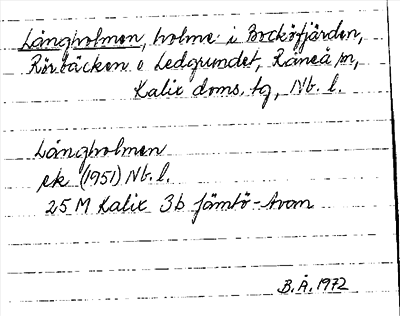 Långholmen, holme i Bocköfjärden,
Rörbäcken o Ledgrundet, Råneå sn,
Kalix doms. tg, Nb. l.
Långholmen
ek (1951) Nb. l.
25 M Kalix 3b Jämtö-Avan
B. Å. 1972